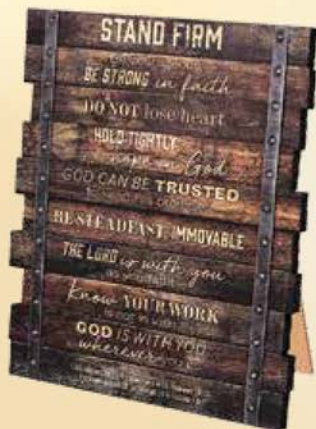 STAND FIRM
BE STRONG in faith
DO NOT lose heart
HOLD TIGHTLY
hope in God
GOD CAN BE TRUSTED
BE STEADFAST, IMMOVABLE
THE LORD is with you
Know YOUR WORK
is not in vain
GOD IS WITH YOU
wherever